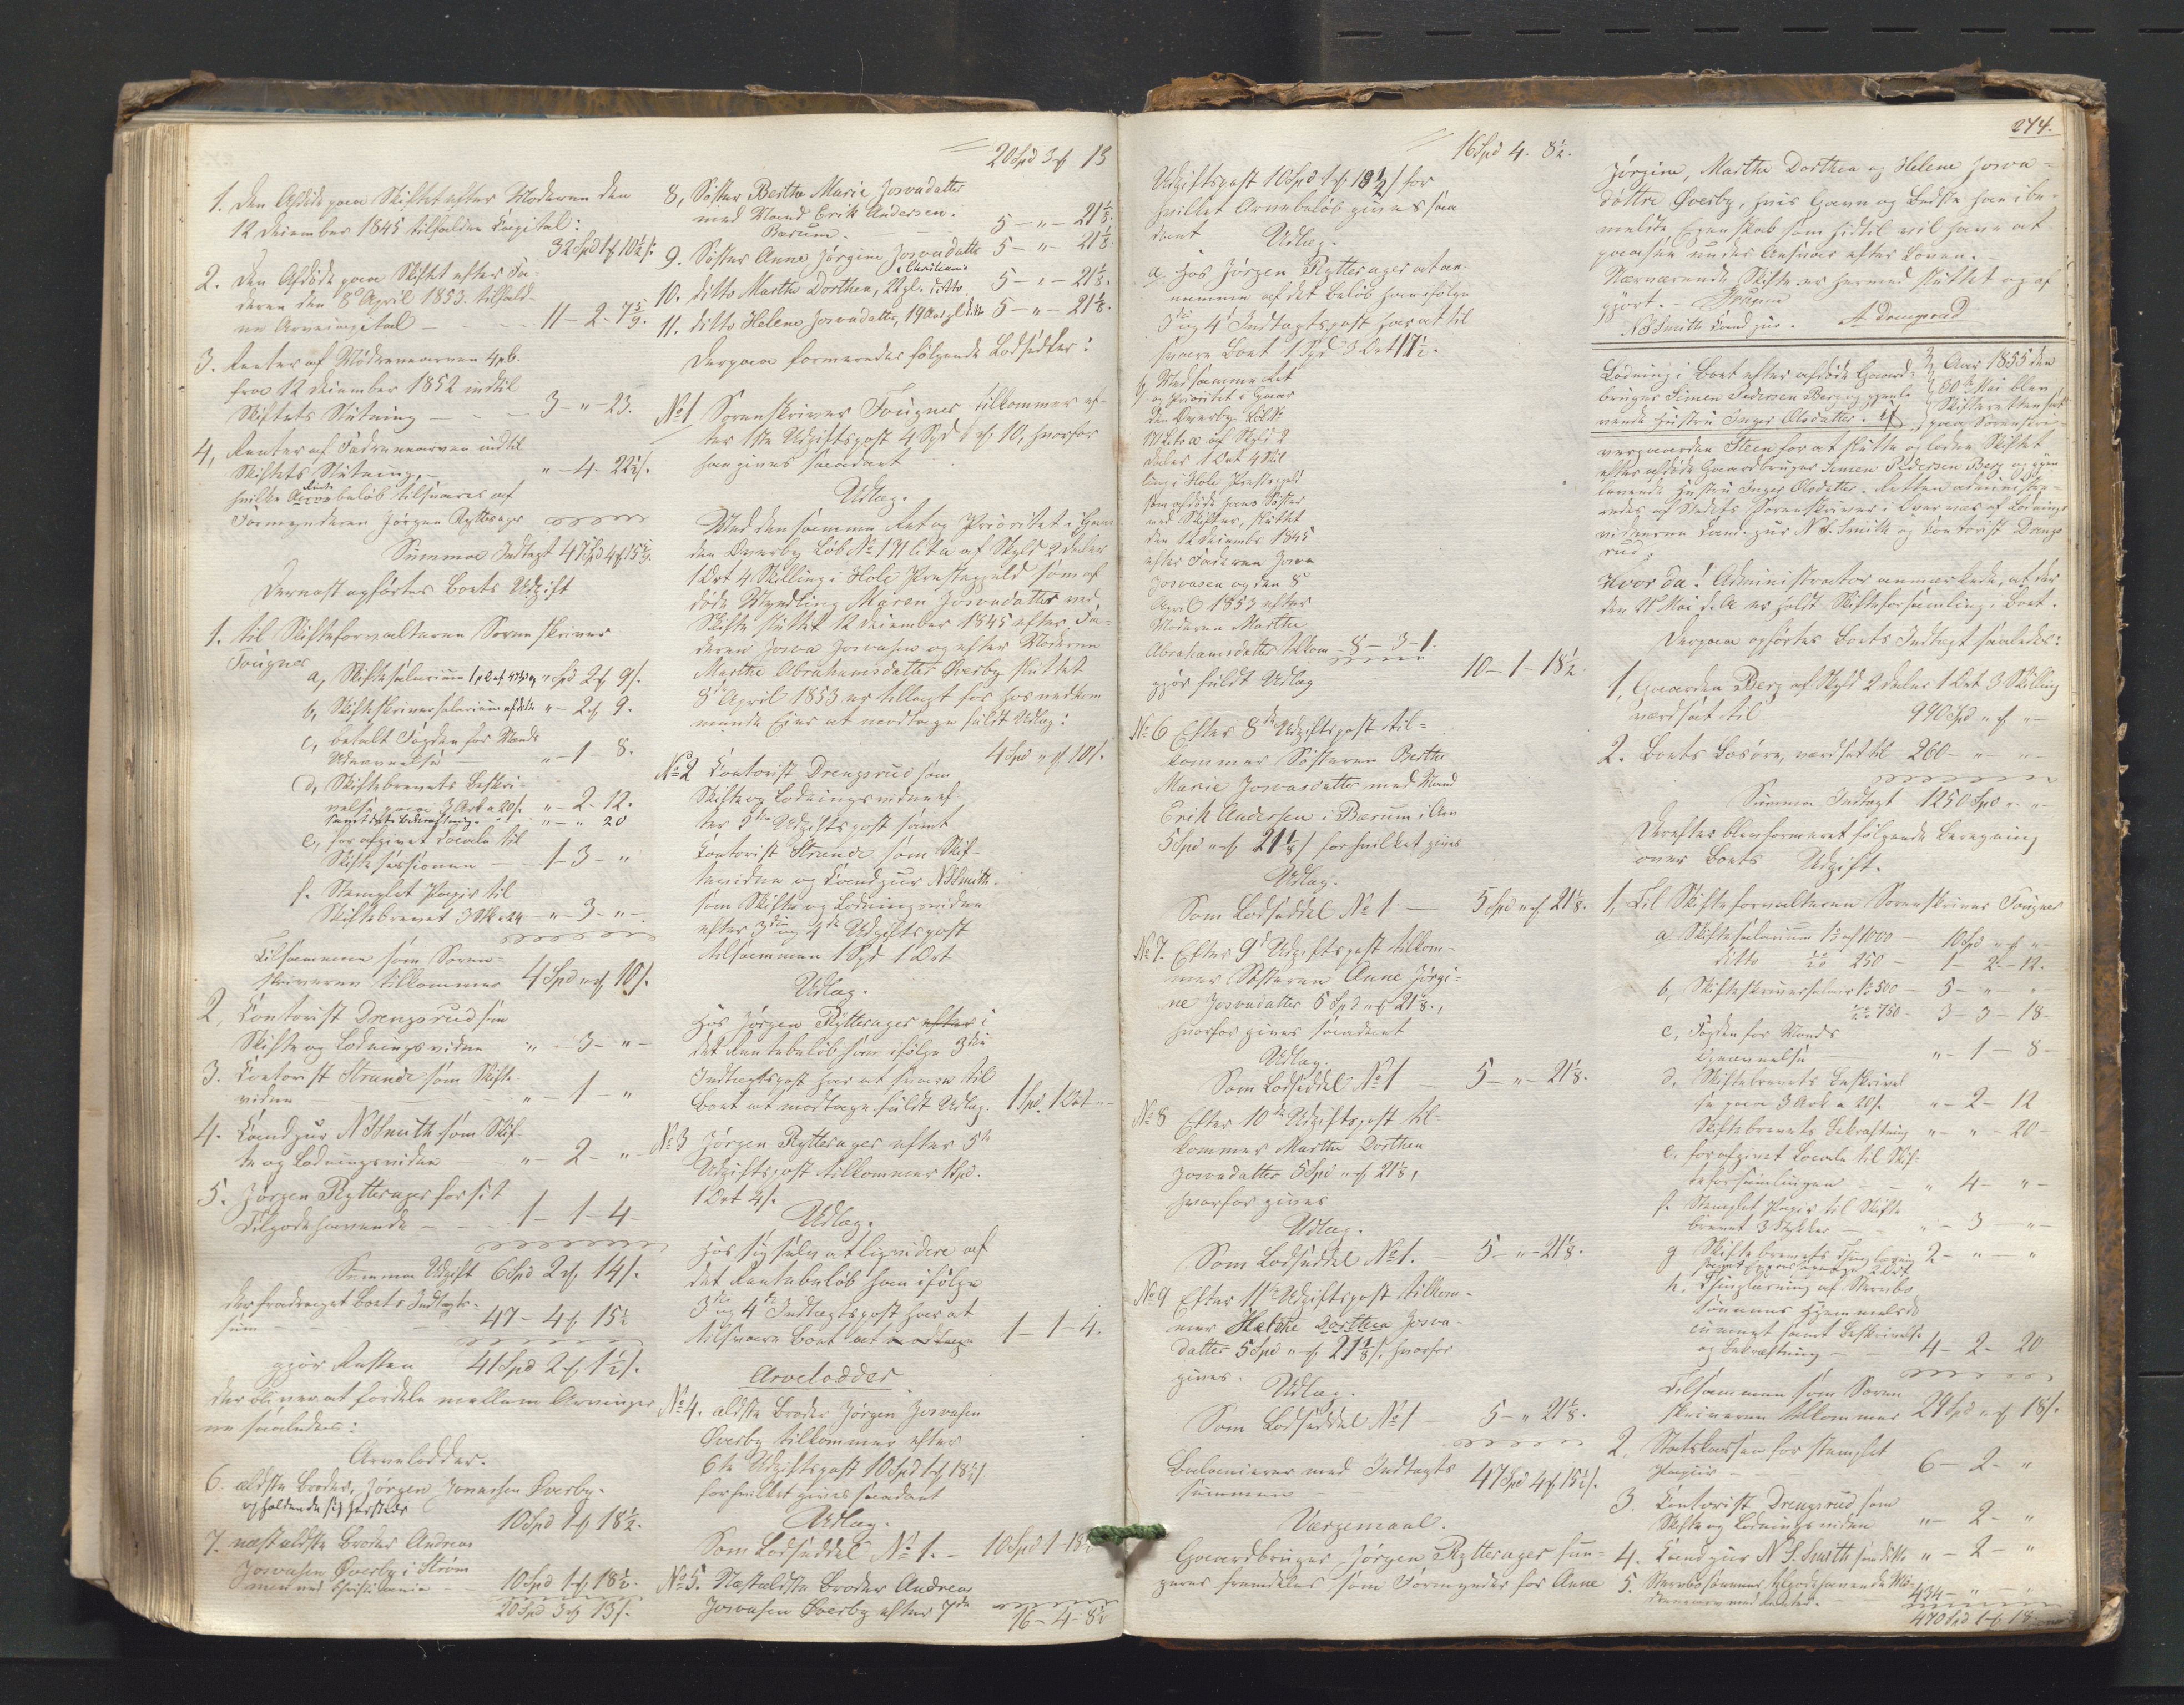 1. Den Afdøde paa Skiftet efter Moderen den
12 December 1845 tilfalden Capital:
32 Spd 1 ½ 10½ s.
2. Den Afdøde paa Skiftet efter Fa-
deren den 8de April 1853 tilfald-
ne Arvecapital — 11 - 2 - 7
3. Renter af Mødrenearven 4 pCt.
fra 12 December 1852 indtil
Skiftets Slutning — 3 - " - 23.
4, Renter af Fædrenearven indtil
Skiftets Slutning, — " - 4 - 22½.
hvilke Rentebeløb tilsvares af
Formynderen Jørgen Rytterager
Summa Indtægt 47 Spd 4 15½.
Dernæst opførtes Boets Udgift
1. Til Skifteforvalteren Sorenskriver
Fougner
a, Skiftesalarium " Spd 2 9 s.
b, Skifteskriversalarium " - 2 - 9.
c, betalt Fogden for Mands
Udnævnelse " - 1 - 8.
d, Skiftebrevets Beskri-
velse paa 3 Ark a 20 s. " - 2 - 12.
samt dets Bekræftning " - " 20
e, for afgivet Locale til
Skiftesessionen — 1 - 3 - "
f. Stemplet Papir til
Skiftebrevet 3 Stk a 24 - " - 3 - " -
Tilsammen som Soren-
skriveren tilkommer 4 Spd " 10 s.
2, Contorist Drengsrud som
Skifte og Lodningsvidne " - 3 - " -
3. Contorist Strande som Skifte-
vidne — " - 1 - "
4. Cand jur N S Smith som Skif-
te og Lodningsvidne " - 2 - "
5. Jørgen Rytterager for sit
Tilgodehavende — 1 - 1 - 4 -
Summa Udgift 6 Spd 2 14 s.
der fradraget Boets Indtægts-
sum — 47 - 4 15½
gjør Resten 41 Spd 2 1½ s.
der bliver at fordele mellem Arvinger-
ne saaledes:
Arvelodder.
6. ældste Broder, Jørgen Josvasen Øverby.
opholdende sig hersteds
10 Spd 1 18½.
7. næstældste Broder Andreas
Josvasen Øverby i Strøm
men ved Christiania — 10 Spd 1 18½.
20 Spd 3 13 s.
20 Spd 3 13
8, Søster Berthe Marie Josvadatter
med Mand Erik Andersen.
Bærum. 5 - " - 21⅛.
9. Søster Anne Jørgine Josvadatter 5 - " - 21⅛.
i Christiania
10. ditto Marthe Dorthea, 22 gl. ditto 5 - " - 21⅛.
11. ditto Helene Josvadatter, 19 Aar gl ditto 5 - " - 21⅛.
Derpaa formeredes følgende Lodsedler:
No 1 Sorenskriver Fougner tilkommer ef-
ter 1ste Udgiftspost 4 Spd " 10, hvorfor
han gives saadant
Udlæg.
Med den samme Ret og Prioritet i Gaar
den Øverby Løb No 171 litr a af Skyld 2 Daler
1 Ort 4 Skilling i Hole Præstegjeld som af
døde Myndling Maren Josvadatter ved
Skifte sluttet 12 December 1845 efter Fa-
deren Josva Josvasen og efter Moderen
Marthe Abrahamsdatter Øverby sluttet
8de April 1853 er tillagt for hos vedkom
mende Eier at modtage fuldt Udlæg:
4 Spd " 10 s.
No 2 Contorist Drengsrud som
Skifte og Lodningsvidne ef-
ter 2den Udgiftspost samt
Contorist Strande som Skif-
tevidne og Cand jur N S Smith.
som Skifte og Lodningsvidne
efter 3die og 4de Udgiftspost
tilsammen 1 Spd 1 Ort
Udlæg.
Hos Jørgen Rytterager efter i
det Rentebeløb som ifølge 3die
Indtægtspost har at svare til
Boet at modtage fuldt Udlæg. 1 Spd. 1 Ort " -
No 3 Jørgen Rytterager efter 5te
Udgiftspost tilkommer 1 Spd.
1 Ort 4 s.
Udlæg.
Hos sig selv at liqvidere af
det Rentebeløb han ifølge
3die og 4de Indtægtspost har at
tilsvare Boet 1 - 1 - 4.
Arvelodder
No 4. ældste Broder Jørgen Josvasen
Øverby tilkommer efter
6te Udgiftspost 10 Spd 1 18½ s
for hvilket gives saadant
Udlæg.
Som Lodseddel No 1. — 10 Spd 1 - 18½
No 5. Næstældste Broder Andreas
Josvasen Øverby efter 7de
16 - 4 - 8½
16 Spd 4. 8½.
Udgiftspost 10 Spd 1 18½ s for
hvilket Arvebeløb gives saa
dant Udlæg.
a. Hos Jørgen Rytterager at an-
namme af det Beløb han ifølge
3die og 4de Indtægtspost har at til
svare Boet 1 Spd 3 Ort 17½.
b, Med samme Ret
og Prioritet i Gaar
den Øverby Løb No
171 litr a af Skyld 2
Daler 1 Ort 4 Skil
ling i Hole Præstegjeld
som afdøde hans Søster
ved Skifter, sluttet
den 12 December 1845
efter Faderen Josva
Josvasen og den 8de
April 1853 efter
Moderen Marthe
Abrahamsdatter tilkom 8 - 3 - 1.
gjør fuldt Udlæg 10 - 1 - 18½.
No 6 Efter 8de Udgiftspost til-
kommer Søsteren Berthe
Marie Josvasdatter med Mand
Erik Andersen i Bærum i Arv
5 Spd " 21⅛ s for hvilket gives
Udlæg.
Som Lodseddel No 1 — 5 Spd " 21⅛.
No 7. Efter 9de Udgiftspost tilkom-
mer Søsteren Anne Jørgi-
ne Josvadatter 5 Spd " 21⅛.,
hvorfor gives saadant
Udlæg.
Som Lodseddel No 1 5 - " - 21⅛.
No 8 Efter 10de Udgiftspost til-
kommer Marthe Dorthea
Josvadatter 5 Spd " 21⅛,
hvorfor gives
Udlæg.
Som Lodseddel No 1. 5 - " - 21⅛.
No 9 Efter 11te Udgiftspost tilkom-
mer Dorthea Josva-
datter 5 Spd " 21⅛ s, hvorfor
gives. Udlæg.
Som Lodseddel No 1 5 - " 21⅛.
Balancerer med Indtægts
summen — 47 Spd 4 15½ s.
Værgemaal.
Gaardbruger Jørgen Rytterager fun-
gerer fremdeles som Formynder for Anne
274.
Jørgine, Marthe Dorthea og Helene Josva-
døttre Øverby, hvis Gavn og Bedste han i be-
meldte Egenskab som hidtil vil have at
paasee under Ansvar efter Loven.
Nærværende Skifte er hermed sluttet og af
gjort. — Fougner
N S Smith Cand jur. A. Drengsrud
Lodning i Boet efter afdøde Gaard-
bruger Simen Pedersen Berg og gjenle
vende Hustru Inger Olsdatter.
Aar 1855 den
30te Mai blev
Skifteretten sat
paa Sorenskri-
vergaarden Steen for at slutte og lodne Skiftet
efter afdøde Gaardbruger Simen Pedersen Berg og gjen
levende Hustru Inger Olsdatter. Retten administre-
redes af Stedets Sorenskriver i Overvær af Lodnings
vidnerne Cand. jur N S. Smith og Contorist Drengs
rud:
Hvor da! Administrator anmærkede, at der
den 21de Mai d. A er holdt Skifteforsamling i Boet.
Derpaa opførtes Boets Indtægt saaledes:
1, Gaarden Berg af Skyld 2 Daler 1 Ort 3 Skilling
værdsat til 990 Spd " "—
2. Boets Løsøre, værdsat til 260 - " "—
Summa Indtægt 1250 Spd " "
Derefter blev formeret følgende Beregning
over Boets Udgift.
1, Til Skifteforvalteren Sorenskriver Fougner
a Skiftesalarium af 1000 — 10 Spd " " -
ditto 250 — 1 - 2 - 12.
b, Skifteskriversalair 500 - 5 - " - "
750 - 3 - 3 - 18 -
c, Fogden for Mands
Udnævnelse " - 1 - 8 -
d, Skiftebrevets Beskrivel
se paa 3 Ark a 20 s. " - 2 - 12
Skiftebrevets Bekræftning " - " - 20 -
e. for afgivet Locale til Skif-
teforsamlingen — " 4 - " -
f. Stemplet Papir til Skifte
brevet 3 Stykker — " - 3 - " -
g Skiftebrevets Thinglæsning 2 - " - "
h, Thinglæsning af Stervbo
sønnens Hjemmelsdo
cument samt Beskrivelse
og Bekræftning — 4 - 2 - 20
Tilsammen som Soren
skriveren tilkommer 29 Spd " 18 s.
2, Statskassen for stemplet
Papir — 6 - 2 - "
3. Contorist Drengsrud som
Skifte og Lodningsvidne " - 2 - "
4. Cand jur N S. Smith som ditto " - 2 - "
5. Stervbosønnens Tilgodehavende
434 - " - "
470 Spd 1 18